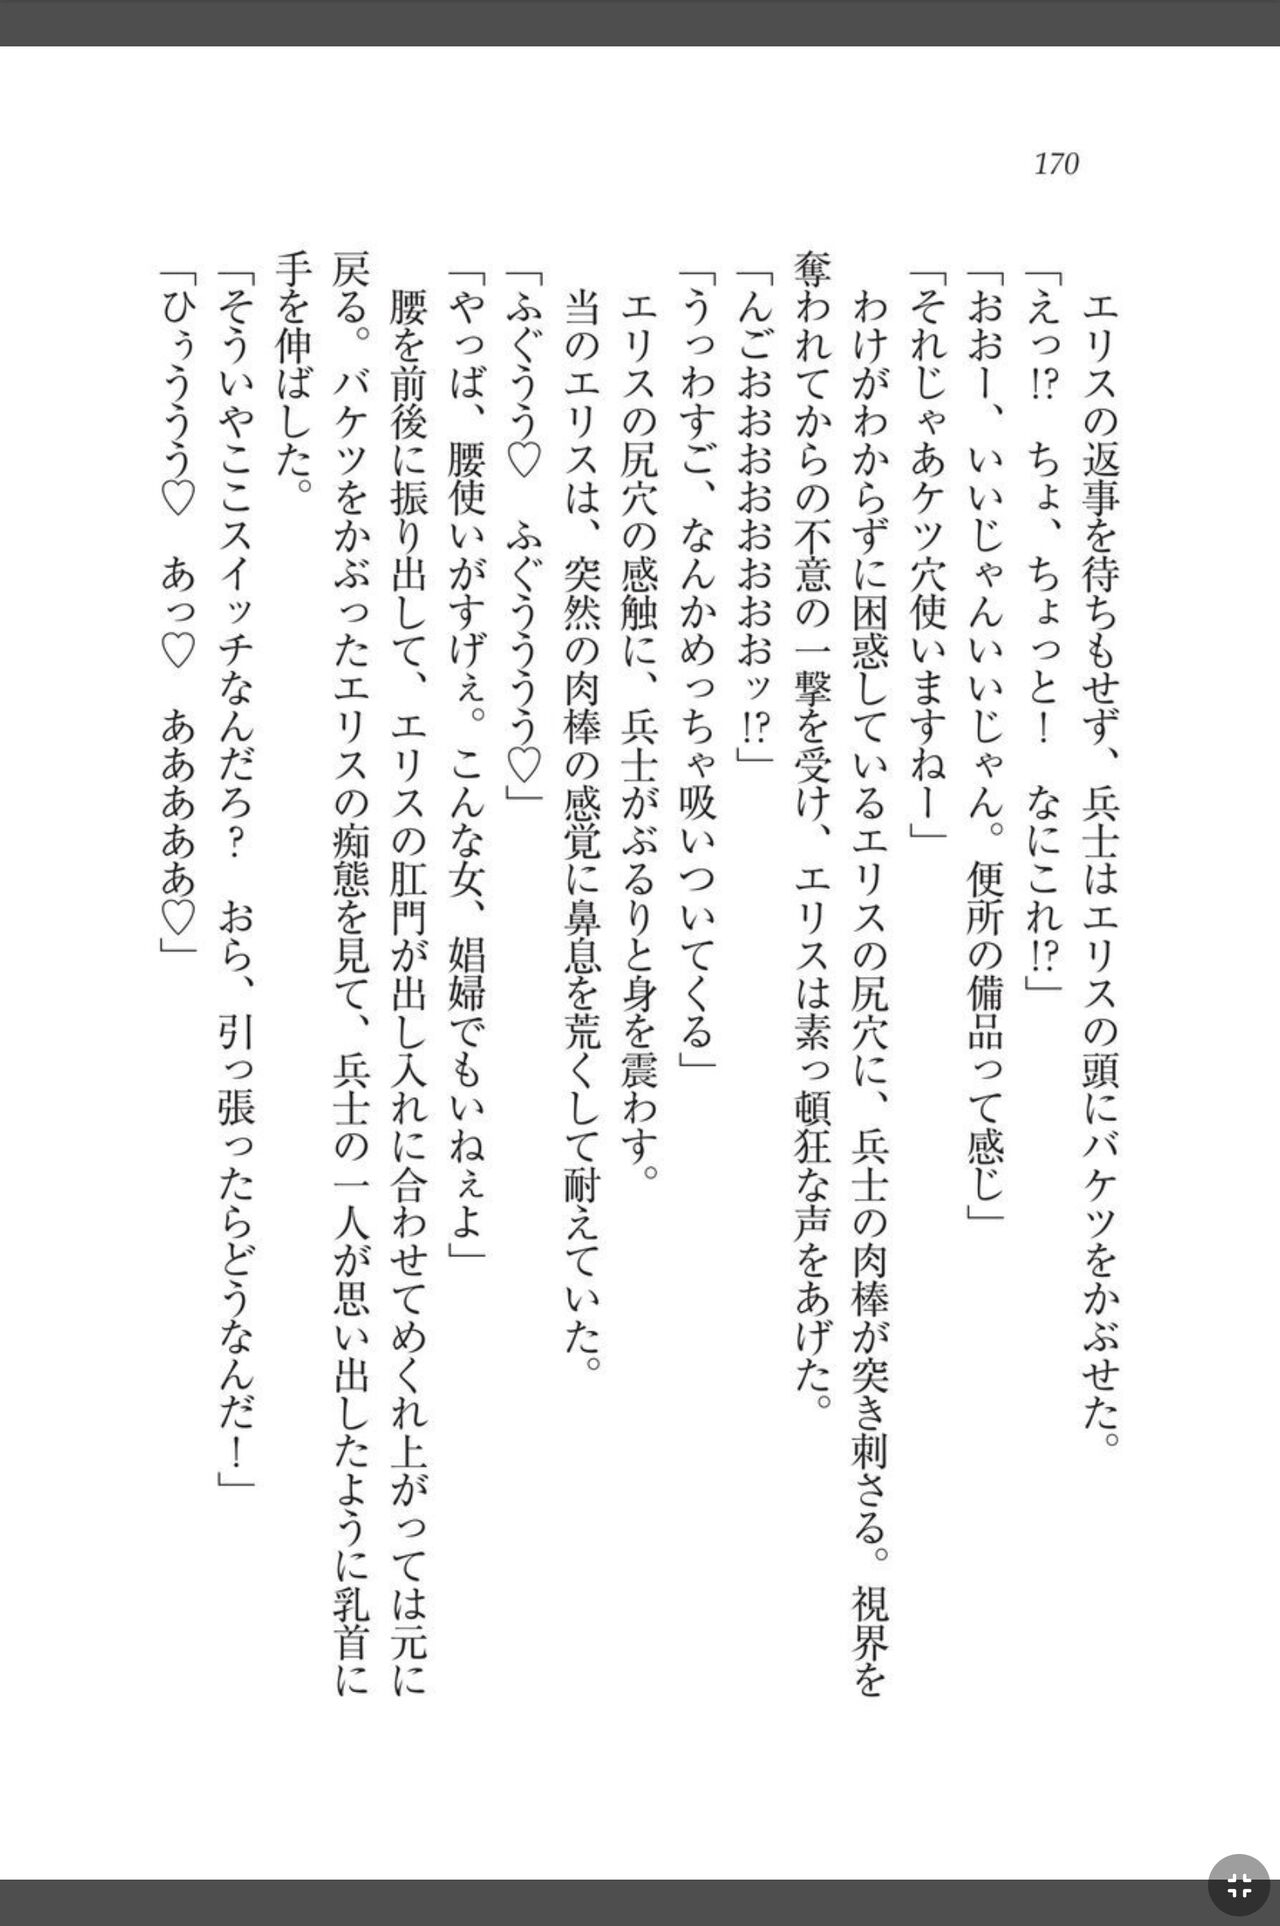 170
エリスの返事を待ちもせず、兵士はエリスの頭にバケツをかぶせた。
「えっ!? ちょ、ちょっと! なにこれ!?」
「おおー、いいじゃんいいじゃん。便所の備品って感じ」
「それじゃあケツ穴使いますねー」
わけがわからずに困惑しているエリスの尻穴に、兵士の肉棒が突き刺さる。視界を
奪われてからの不意の一撃を受け、エリスは素っ頓狂な声をあげた。
「んごおおおおおおおおッ!?」
「うっわすご、なんかめっちゃ吸いついてくる」
エリスの尻穴の感触に、兵士がぶるりと身を震わす。
当のエリスは、突然の肉棒の感覚に鼻息を荒くして耐えていた。
「ふぐうう♡ ふぐうううう♡」
「やっば、腰使いがすげぇ。こんな女、娼婦でもいねぇよ」
腰を前後に振り出して、エリスの肛門が出し入れに合わせてめくれ上がっては元に
戻る。バケツをかぶったエリスの痴態を見て、兵士の一人が思い出したように乳首に
手を伸ばした。
「そういやここスイッチなんだろ? おら、引っ張ったらどうなんだ!」
「ひぅううう♡ あっ♡ あああああ♡」